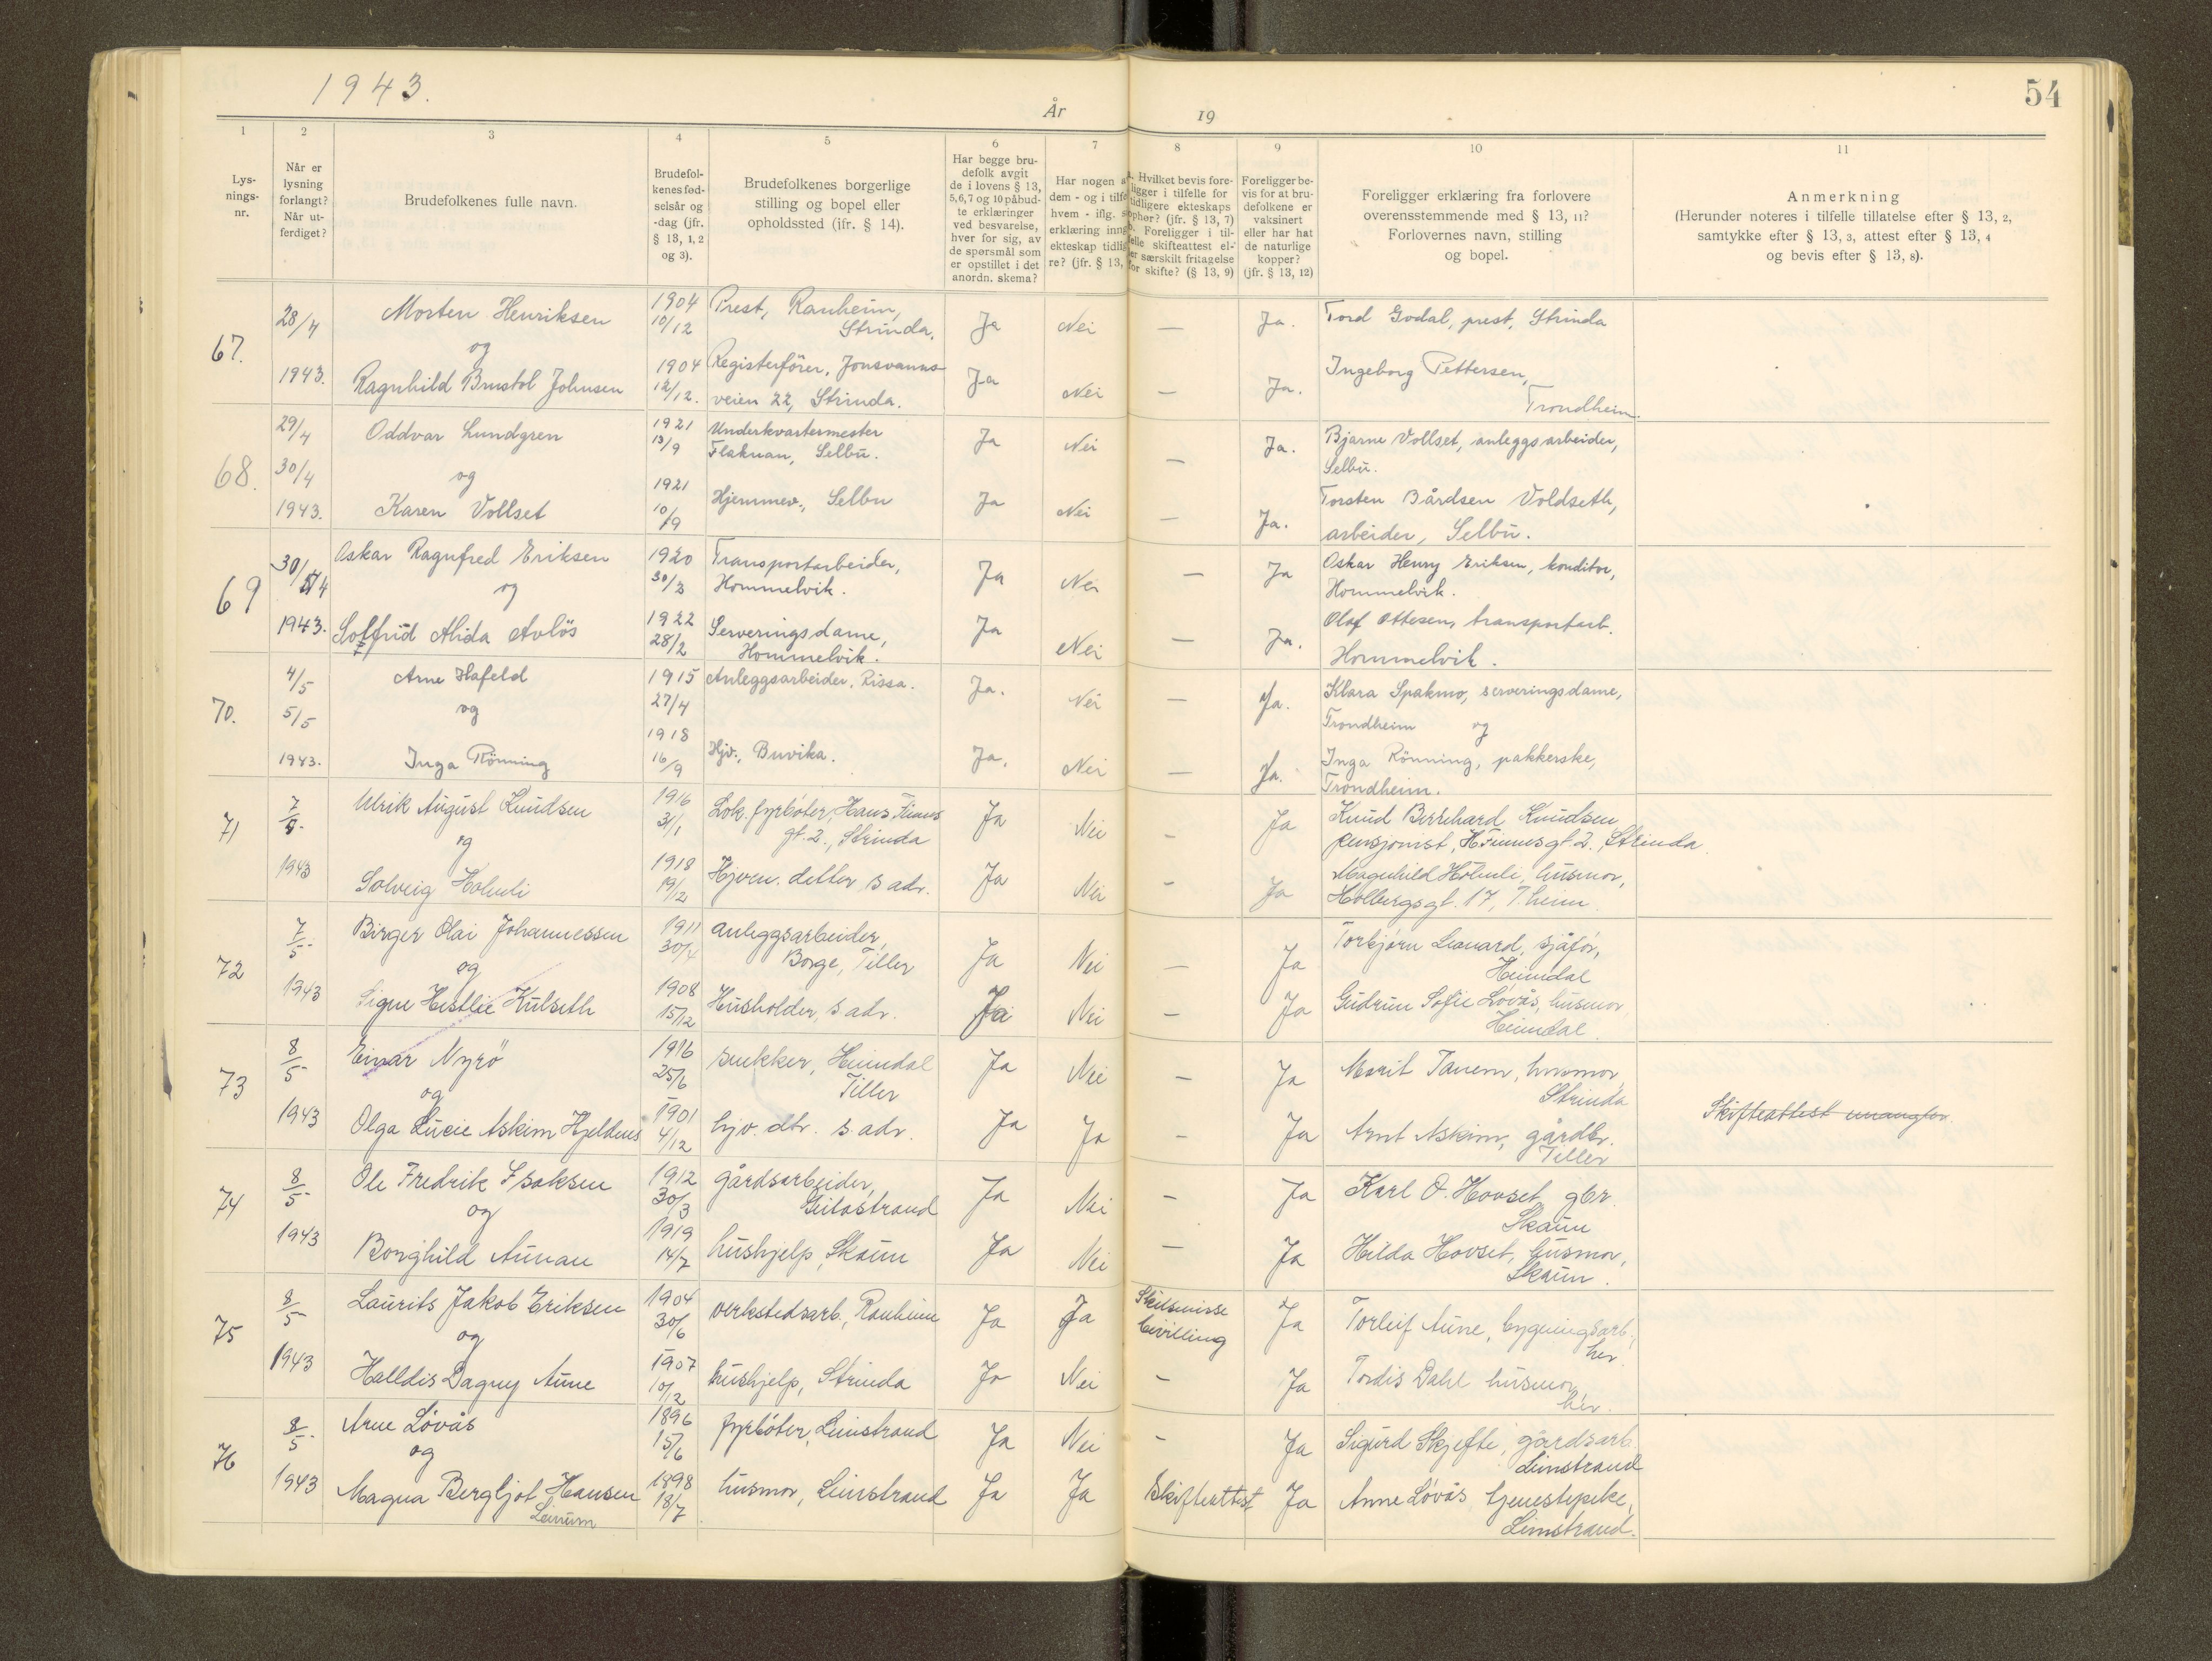 1943.
År
19
54
1
2
3
4
5
6
7
8
9
10
11
Lys-
nings-
nr.
Når er
lysning
forlangt?
Når ut-
ferdiget?
Brudefolkenes fulle navn.
Brudefol-
kenes fød-
selsår og
-dag (jfr.
§ 13, 1, 2
og 3).
Brudefolkenes borgerlige
stilling og bopel eller
opholdssted (jfr. § 14).
Har begge bru-
defolk avgit
de i lovens § 13,
5, 6, 7 og 10 påbud-
te erklæringer
ved besvarelse,
hver for sig, av
de spørsmål som
er opstillet i det
anordn. skema?
Har nogen a
dem - og i tilfe
hvem - iflg. s
erklæring inng
ekteskap tidlig
re? (jfr. § 13,
Hvilket bevis fore-
ligger i tilfelle for
tidligere ekteskaps
ophør? (jfr. § 13, 7)
b. Foreligger i til-
felle skifteattest el-
er særskilt fritagelse
for skifte? (§ 13, 9)
Foreligger be-
vis for at bru-
defolkene er
vaksinert
eller har hat
de naturlige
kopper?
(jfr. § 13, 12)
Foreligger erklæring fra forlovere
overensstemmende med § 13, 11?
Forlovernes navn, stilling
og bopel.
Anmerkning
(Herunder noteres i tilfelle tillatelse efter § 13, 2,
samtykke efter § 13, 3, attest efter § 13, 4
og bevis efter § 13, 8).
67.
28/4
1943.
Morten Henriksen
og
Ragnhild Brustol Johnsen
1904
10/12
1904
12/12.
Prest, Ranheim,
Strinda.
Registerfører, Jonsvanns-
veien 22, Strinda.
Ja
Ja
Nei
Nei
—
—
Ja.
Ja.
Tord Godal, prest, Strinda
Ingeborg Pettersen,
Trondheim.
68.
29/4
30/4
1943.
Oddvar Lundgren
og
Karen Vollset
1921
13/9
1921
10/9
Underkvartermester
Flaknan, Selbu.
Hjemmev., Selbu
Ja
Ja
Nei
Nei
—
—
Ja.
Ja.
Bjarne Vollset, anleggsarbeider,
Selbu.
Torsten Bårdsen Voldseth,
arbeider, Selbu.
69
30/4
1943.
Oskar Ragnfred Eriksen
og
Solfrid Alida Avløs
1920
30/3
1922
28/2
Transportarbeider,
Hommelvik.
Serveringsdame,
Hommelvik.
Ja
Ja
Nei
Nei
—
—
Ja
Ja.
Oskar Henry Eriksen, konditor,
Hommelvik.
Olaf Ottesen, transportarb.
Hommelvik.
70.
4/5
5/5
1943.
Arne Hafeld
og
Inga Rönning
1915
27/4
1918
16/9
Anleggsarbeider, Rissa.
Hjv., Buvika.
Ja.
Ja.
Nei
Nei
—
—
Ja.
Ja.
Klara Spakmo, serveringsdame,
Trondheim og
Inga Rönning, pakkerske,
Trondheim.
71
7/5.
1943
Ulrik August Knudsen
og
Solveig Holmli
1916
31/1
1918
19/12
Lok. fyrbøter, Hans Finns
gt. 2., Strinda
Hjem. datter s adr.
Ja
Ja
Nei
Nei
-
-
Ja
Ja
Knud Knudsen
pensjonist, H. Finnsgt. 2. Strinda
Magnhild Holmli, husmor,
Holbergsgt. 17, T.heim.
72
7/5.
1943
Birger Olai Johannessen
og
Signe Hestlie Kulseth
1911
30/4
1908
15/12
anleggsarbeider,
Borge, Tiller
Husholder, s adr.
Ja
Ja
Nei
Nei
—
-
Ja
Ja
Torbjørn Leonard, sjåfør,
Heimdal
Gudrun Sofie Løvås, husmor,
Heimdal.
73
8/5.
1943
Einar Nyrø
og
Olga Lucie Askim Hjeldnes
1916
25/6
1901
4/12
snekker, Heimdal
Tiller
hjv. dtr. s. adr.
Ja
Ja
Nei
Ja
-
-
Ja
Ja
Marit Tanem, husmor,
Strinda
Arnt Askim, gårdbr.
Tiller
Skifteattest mangler.
74
8/5.
1943
Ole Fredrik Isaksen
og
Borghild Aunan
1912
30/3
1919
14/7
gårdsarbeider,
Geitastrand
hushjelp, Skaun
Ja
Ja
Nei
Nei
-
-
Ja
Ja
Karl O. Hovset, gbr.
Skaun
Hilda Hovset, husmor,
Skaun.
75
8/5.
1943
Laurits Jakob Eriksen
og
Halldis Dagny Aune
1904
30/6
1907
10/12
verkstedsarb., Ranheim
hushjelp, Strinda
Ja
Ja
Ja
Nei
Skilsmisse
bevilling
-
Ja
Ja
Torleif Aune, bygningsarb.,
her.
Tordis Dahl husmor,
her.
76
8/5.
1943
Arne Løvås
og
Magna Bergljot Hansen
Leinum
1896
15/6
1898
18/7
fyrbøter, Leinstrand
husmor, Leinstrand
Ja
Ja
Nei
Ja
-
Skifteattest
Ja
Ja
Sigurd Skjefte, gårdsarb.
Leinstrand
Anne Løvås, tjenestepike,
Leinstrand.